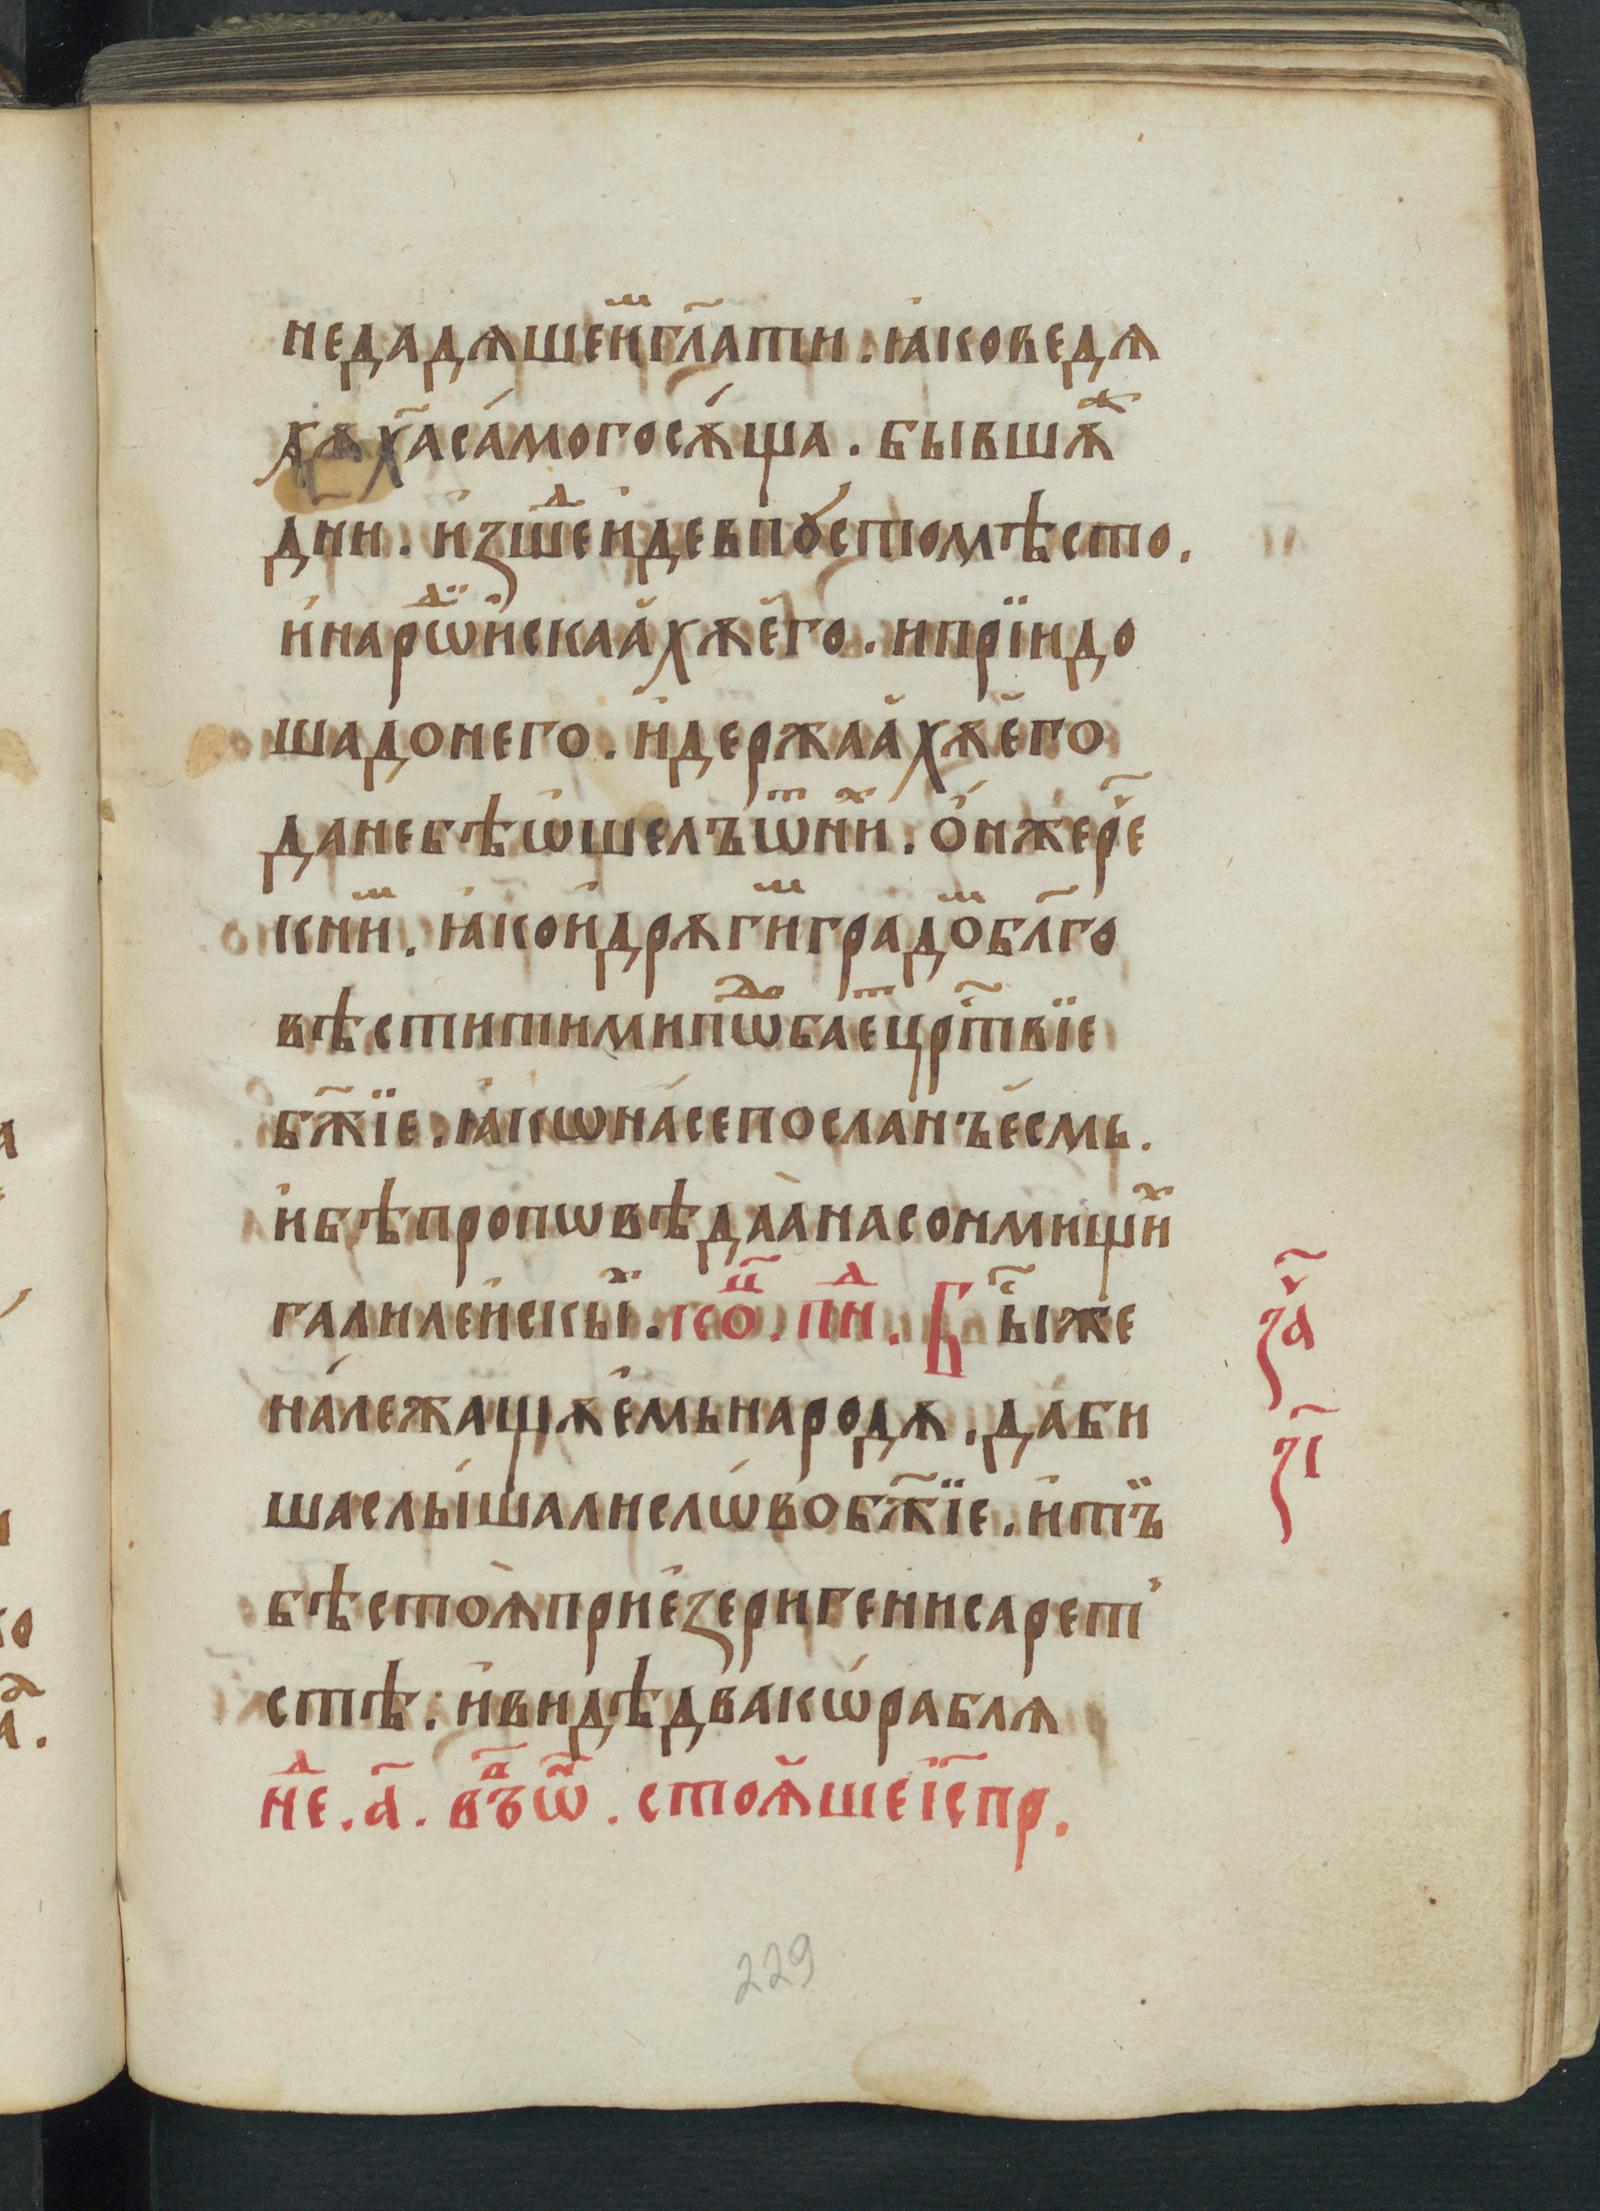 не дадѧше и҆мⷨ гл҃ати . ꙗ҆ко ведѧ
хѫ х҃а са́мого сѫ́ща . бывшѫⷤ
дн҃и . и҆зшеⷣ и҆де в пꙋ́сто мѣсто .
и҆ нароⷣ и҆скаӑхѫ є҆го . и прїидо
ша до него . и҆ держаӑхѫ є҆го
да не бѣ ѿшелъ ѿ ниⷯ . ѻ҆н же ре҃
к ниⷨ . ꙗ҆ко и дрѫгиⷨ градоⷨ бл҃го
вѣстити ми пⷣобаеⷮ црⷭ҇твїе
бж҃їе . ꙗ҆кѡ на́ се посланъ є҆смь .
и҆ бѣ проповѣдаа на сонмищиⷯ
галилейскыⷯ . коⷰ҇ . пⷩⷣ . Бы҃ же
на́лежащѫ є҆мь народѫ . да би
ша слы́шали сло́во бж҃їе . и҆ тъ̈
бѣ стоѧ при є҆зери генисареті
стѣ . и҆ видѣ два кѡ́раблѧ
неⷣ . а҃ . въ ѿ . стоѧ̆ше і҃с пр .
за҃ч
зі҃
229